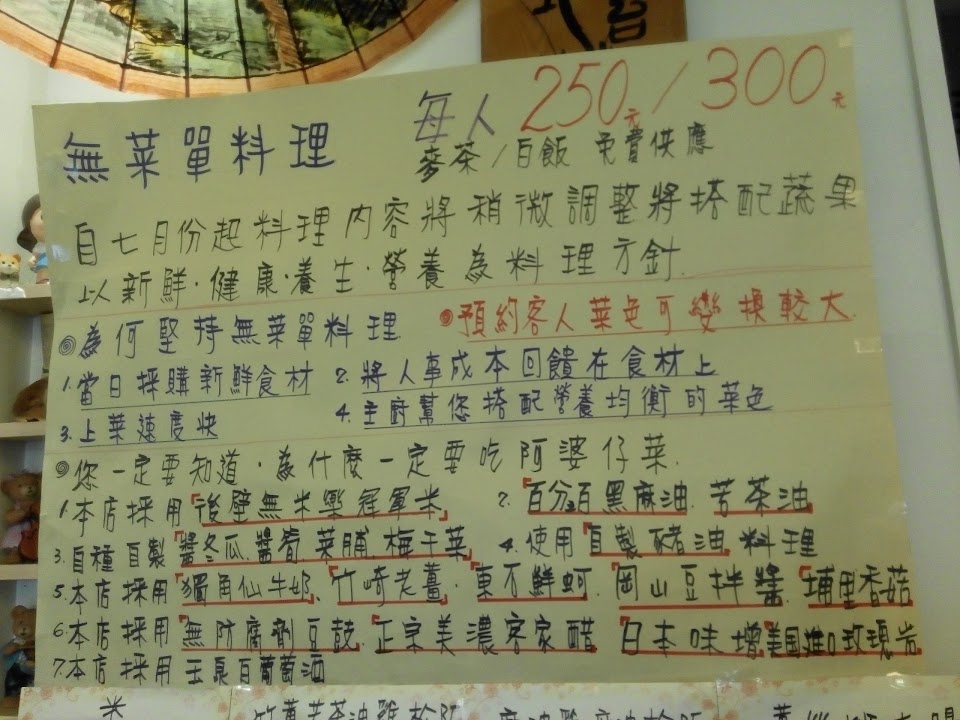 無菜單料理
每人 250元/300元
麥茶/白飯 免費供應
自七月份起料理內容將稍微調整將搭配蔬果
以新鮮·健康·養生·營養為料理方針.
◎為何堅持無菜單料理 ◎預約客人菜色可變換較大.
1.當日採購新鮮食材 2.將人事成本回饋在食材上
3.上菜速度快 4.主廚幫您搭配營養均衡的菜色
◎您一定要知道·為什麼一定要吃阿婆仔菜.
1.本店採用「後壁無米樂冠軍米」 2.「百分百黑麻油.苦茶油」
3.自種自製「醬冬瓜.醬筍.菜脯.梅干菜」 4.使用「自製豬油」料理
5.本店採用「獨角仙牛奶」、「竹崎老薑」.「東石鮮蚵」.「岡山豆拌醬」.「埔里香菇」
6.本店採用「無防腐劑豆鼓」.「正宗美濃客家醋」 「日本味增」「美国進口玫瑰岩
7.本店採用玉泉白葡萄酒